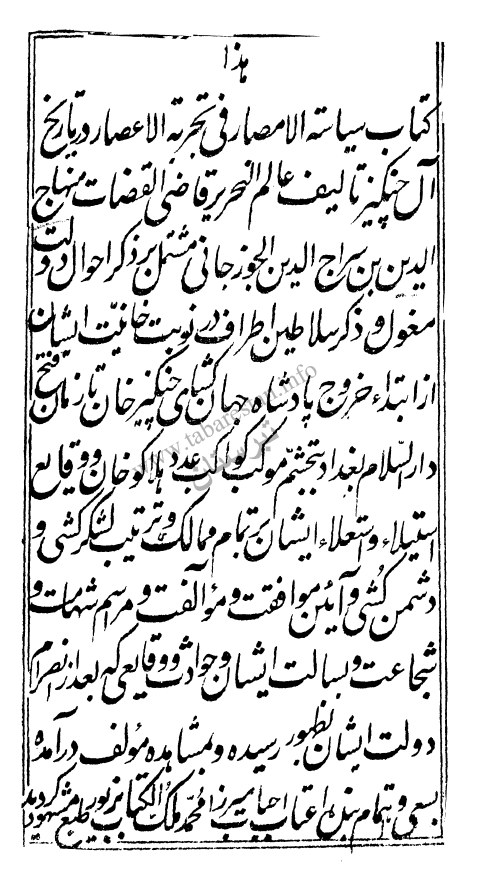 هذا
کتاب سیاسة الامصار فی تجربة الاعصار در تاریخ
آل چنگیز تالیف عالم النحریر قاضی القضات منهاج
الدین بن سراج الدین الجوزجانی مشتمل بر ذکر احوال دولت
مغول و ذکر سلاطین اطراف در نوبت خانیّت ایشان
از ابتداء خروج پادشاه جهان کشای چنگیز خان تا زمان فتح
دار السّلام بغداد بتجشّم موکب کواکب عدد هلاکو خان و وقایع
استیلاء و استعلاء ایشان بر تمام ممالک و ترتیب لشکر کشی و
دشمن کُشی و آئین موافقت و مؤآلفت و مراسم شهامت و
شجاعت و بسالت ایشان و حوادث و وقایعی که بعد از انصرام
دولت ایشان بظهور رسیده و بمشاهده مؤلف درآمده
بسعی و اهتمام بنده اعتاب احباب میرزا محمّد ملک الکتاب بزیور طبع مشهود گردید
www.tabarestan.info
تبرستان